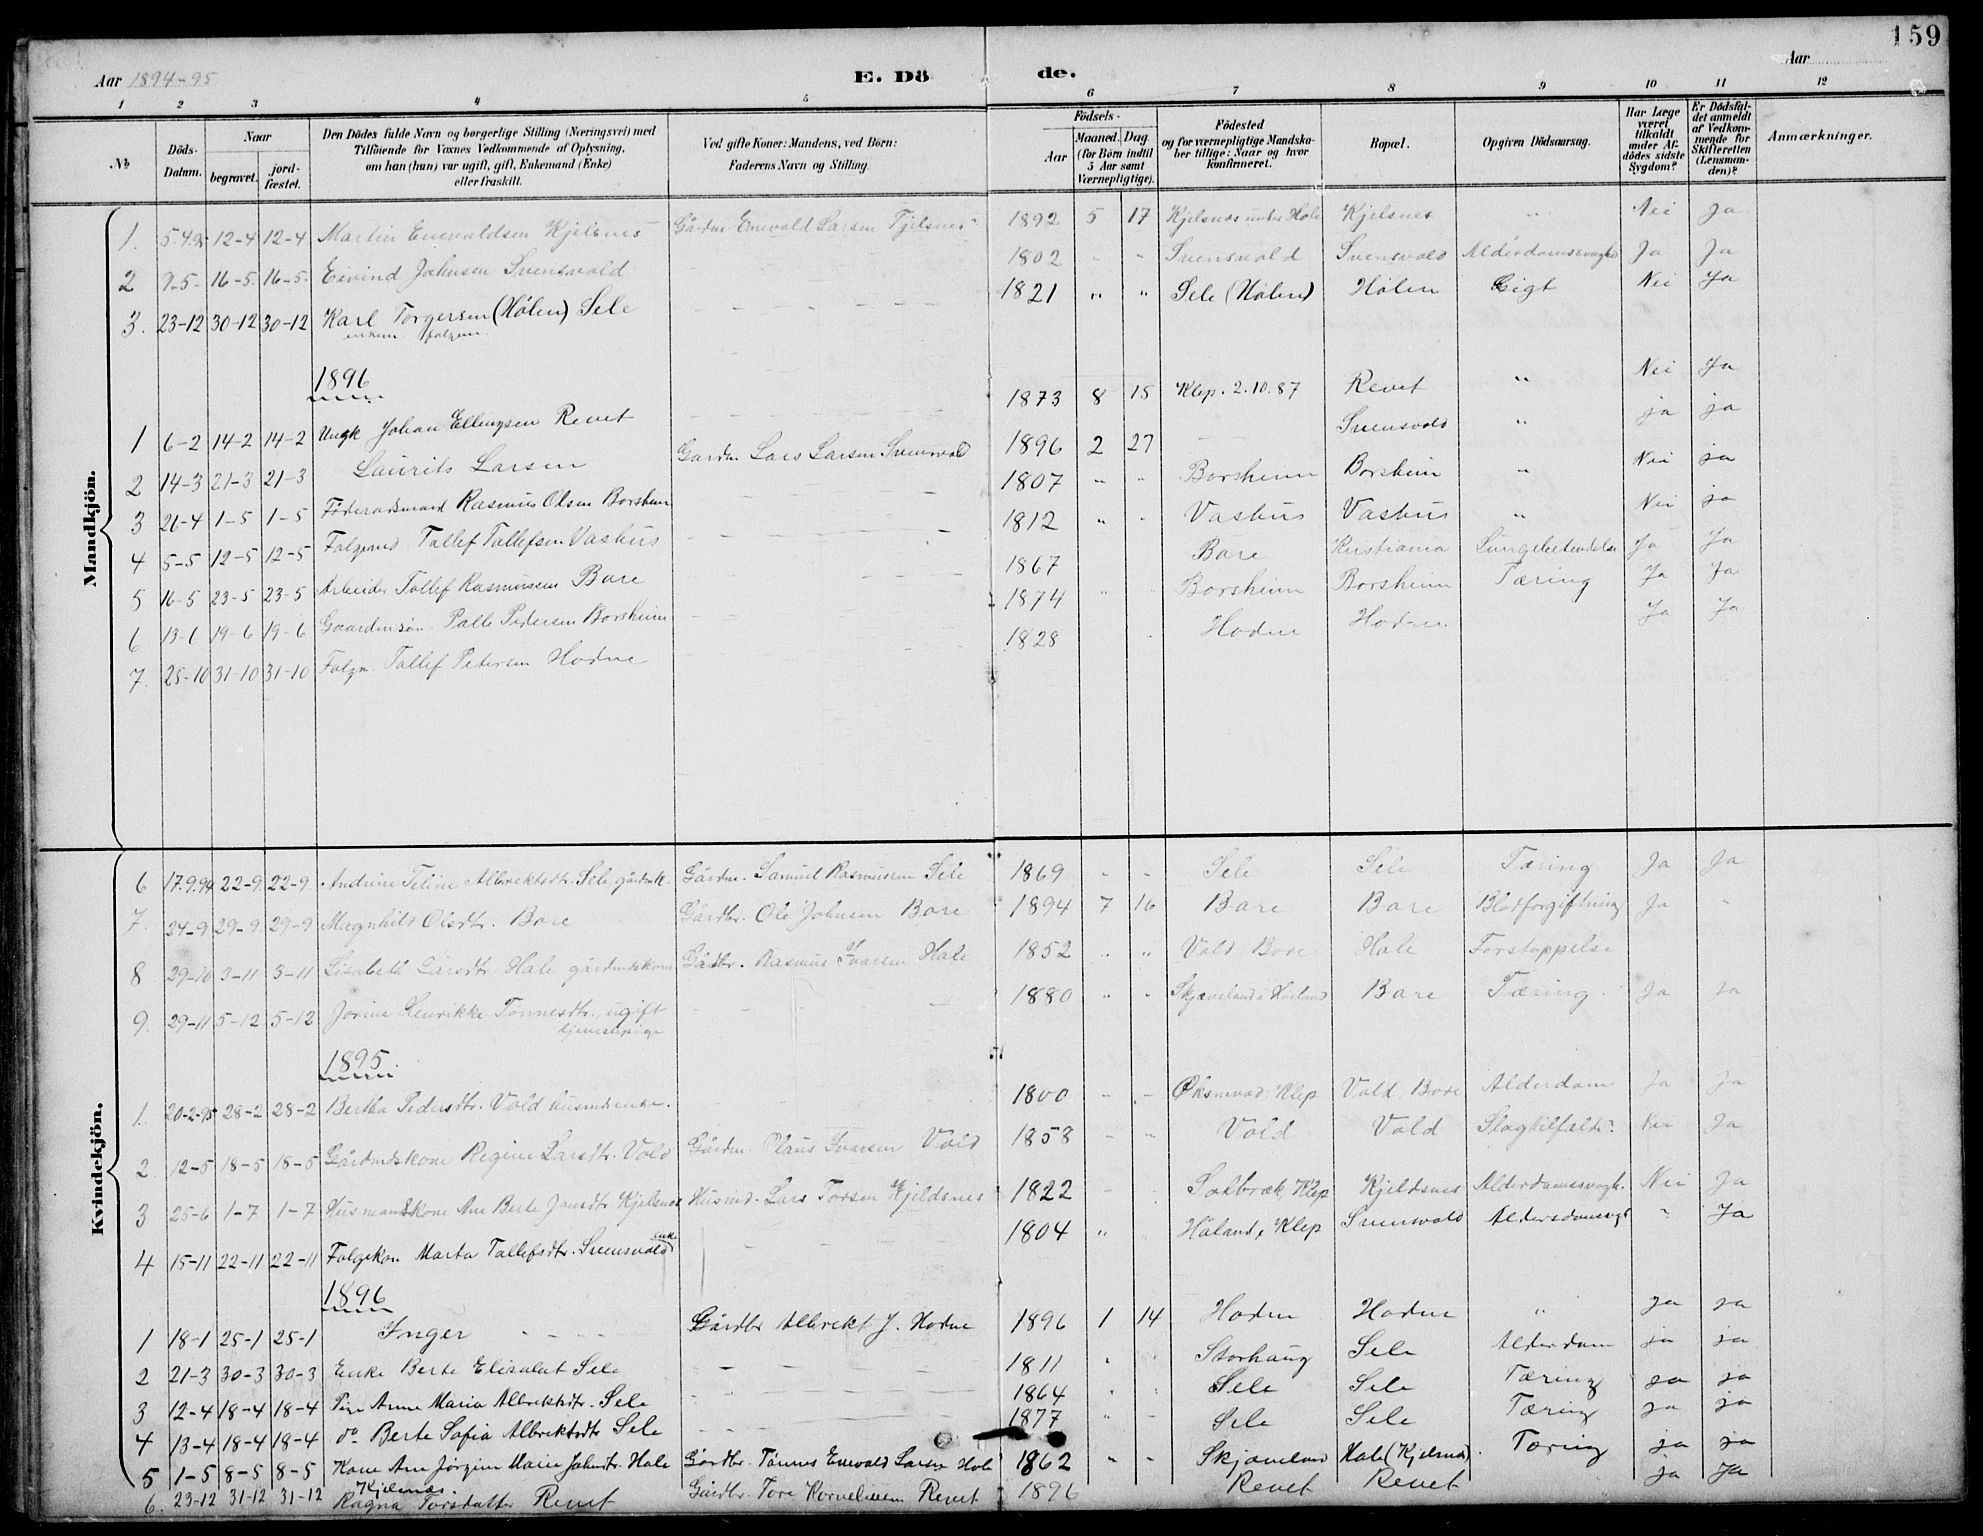 159
Aar 1894-95 E. Dö de. Aar
1 2 3 4 5 6 7 8 9 10 11 12
No Döds-Datum. Naar begravet. jord-fæstet. Den Dödes fulde Navn og borgerlige Stilling (Næringsvei) med Tilföiende for Voxnes Vedkommende af Oplysning, om han (hun) var ugift, gift, Enkemand (Enke) eller fraskilt. Ved gifte Koner: Mandens, ved Börn: Faderens Navn og Stilling. Födsels- Aar Maaned. Dag. (for Börn indtil 5 Aar samt Værnepligtige). Födested og for værnepligtige Mandskaber tillige: Naar og hvor konfirmeret. Bopæl. Opgiven Dödsaarsag. Har Læge været tilkaldt under Afdödes sidste Sygdom? Er Dödsfaldet anmeldt af Vedkommende for Skifteretten (Lensmanden)? Anmærkninger.
Mandkjön.
1. 5-4.95 12-4 12-4 Martin Enevaldsen Kjelsnes Gårdm. Enevald Larsen Tjelsnes 1892 5 17 Kjelsnes under Hole Kjelsnes " Nei Ja
2 7-5- 16-5. 16-5. Eivind Johnsen Svensvold 1802 " " Svensvold Svensvold Alderdomssvaghd Ja Ja
3. 23-12 30-12 30-12 Karl Torgersen (Hølen) Sele 1821 " " Sele (Hølen) Hølen Gigt Nei Ja
1896
1 6-2 14-2 14-2 Ungk Johan Ellingsen Revet 1873 8 15 Klep. 2.10.87 Revet " Nei Ja
2 14-3 21-3 21-3 Laurits Larsen Gardm Lars Larsen Svensvold 1896 2 27 Svensvold " ja ja
3 21-4 1-5 1-5 Föderaadsmand Rasmus Olsen Borsheim 1807 " " Borsheim Borsheim " Nei ja
4 5-5 12-5 12-5 Tallef Tallefsen Vashus 1812 " " Vashus Vashus " Nei ja
5 16-5 23-5 23-5 Arbeider Tallef Rasmussen Bore 1867 Bore Kristiania Lungebetændelse Ja Ja
6 13-6 19-6 19-6 Gaardmsön Palle Pedersen Borsheim 1874 " Borsheim Borsheim Tæring Ja Ja
7. 25-10 31-10 31-10 Folgm. Tallef Petersen Hodne 1828 Hodne Hodne Ja Ja
Kvindekjön.
6 17.9.94 22-9. 22-9. Andrine Teline Albrektsdtr. Sele gårdmk. Gårdm. Samuel Rasmussen Sele 1869 " " Sele Sele Tæring Ja Ja
7. 24-9 29-9 29-9 Magnhild Olsdtr. Bore Gårdbr. Ole Johnsen Bore 1894 7 16 Bore Bore Blodforgiftning Ja "
8 29-10 3-11 3-11 Lisabeth Larsdtr. Hole gårdmdskone Gårdbr. Rasmus Ivarsen Hole 1852 " " Vold Bore Hole Forstoppelse
9. 29-11 5-12 5-12 Jorine Henrikke Tønnesdtr., ugift tjenestepige 1880 " " Skjæveland i Høiland Bore Tæring. Ja Ja
1895
1. 20-2-95 28-2 28-2 Bertha Pedersdtr. Vold husmdsenke. 1800 " " Øksnevad, Klep Vold, Bore Alderdom Ja Ja
2 12-5 18-5 18-5 Gårdmdskone Regine Larsdtr. Vold Gårdm. Claus Ivarsen Vold 1858 " " Vold Vold Slagtilfælde? Nei Ja
3 25-6 1-7 1-7 Husmandskone Ane Berte Jonsdtr. Kjelsnes Husmd. Lars Torsen Kjeldsnes 1822 " Klep Kjeldsnes Alderdomssvagh. Nei Ja
4 15-11 22-11 22-11 Folgekon. Marta Tallefsdtr. Svensvold enke 1804 " Håland, Klep Svensvold Aldersdomssvgh " Ja
1896
1 18-1 25-1 25-1 Inger Gårdbr Albrekt J. Hodne 1896 1 14 Hodne Hodne " Ja ja
2 21-3 30-3 30-3 Enke Berte Elisabet Sele 1811 " Storhaug Sele Alderdom ja ja
3 12-4 18-4 18-4 Pige Anne Maria Albrektsdtr. Sele 1864 " Sele Sele Tæring ja ja
4 13-4 18-4 18-4 do Berte Sofia Albrektsdtr Sele 1877 " " Sele Sele Tæring ja ja
5 1-5 8-5 8-5 Kone Ane Jørgine Marie Johnsdtr. Hole Kjelsnæs. Gårdbr. Tønnes Enevald Larsen Hole 1862 " " Skjæveland Hole (Kjelsnæs). Tæring ja ja
6. 23-12 31-12 31-12 Ragna Torsdatter Revet Gårdbr. Tore Korneliusen Revet 1896 Revet Revet ja Ja